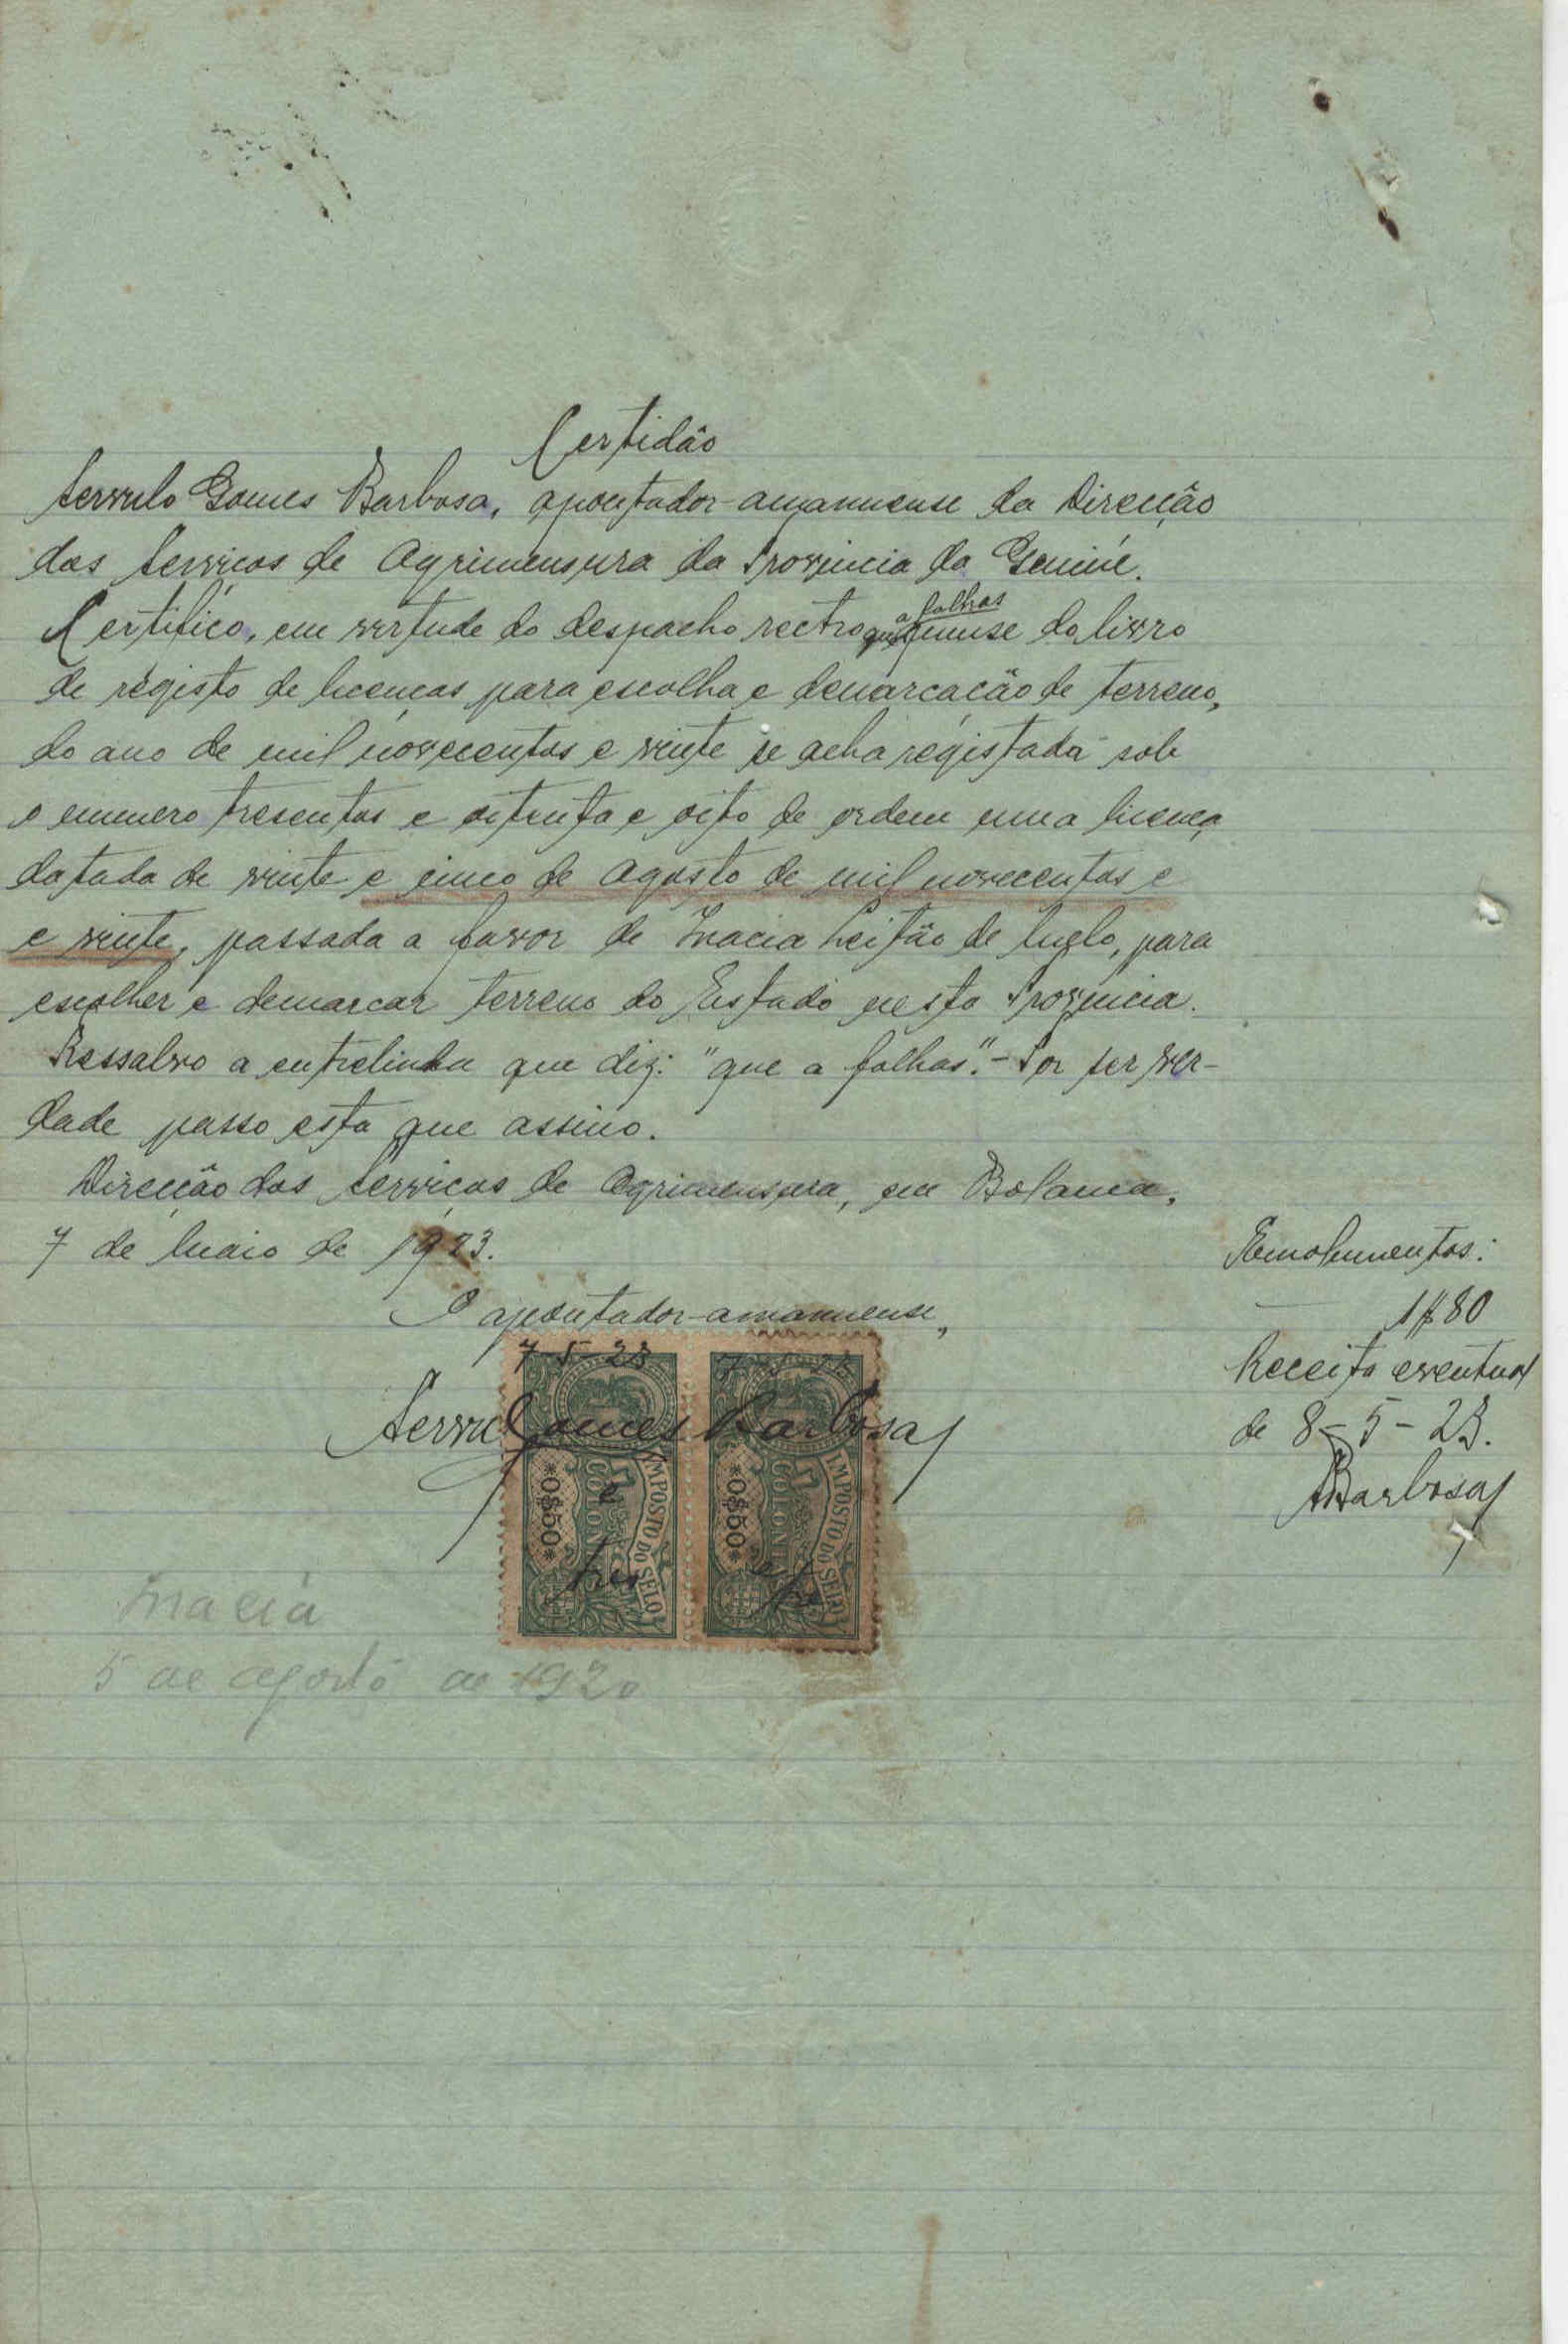 Certidão
Servulo Gomes Barbosa, apontador-amanuense da Direcção
dos Serviços de Agrimensura da Provincia da Guiné.
Certifico, em virtude do despacho rectro que a folhas quinse do livro
de régisto de licenças para escolha e demarcacão de terreno,
do ano de mil novecentos e vinte se acha régistada sob
o numero tresentos e oitenta e oito de ordem uma licença
datada de vinte e cinco de Agosto de mil novecentos e
e vinte, passada a favor de Inacia Leitão de Melo, para
escolher e demarcar terreno do Estado nesta Provincia.
Ressalvo a entrelinha que diz: "que a folhas". - Por ser ver-
dade passo esta que assino.
Direcção dos Serviços de Agrimensura, em Bolama,
7 de Maio de 1923.
O apontador-amanuense,
7-5-23 7-5-23
Servulo Gomes Barbosa
IMPOSTO DO SELO
COLONIA
*0$50*
tres
IMPOSTO DO SELO
COLONIA
*0$50*
Emolumentos:
1$80
Receita eventual
de 8-5-23.
Barbosa
Inacia
5 de Agosto de 1920